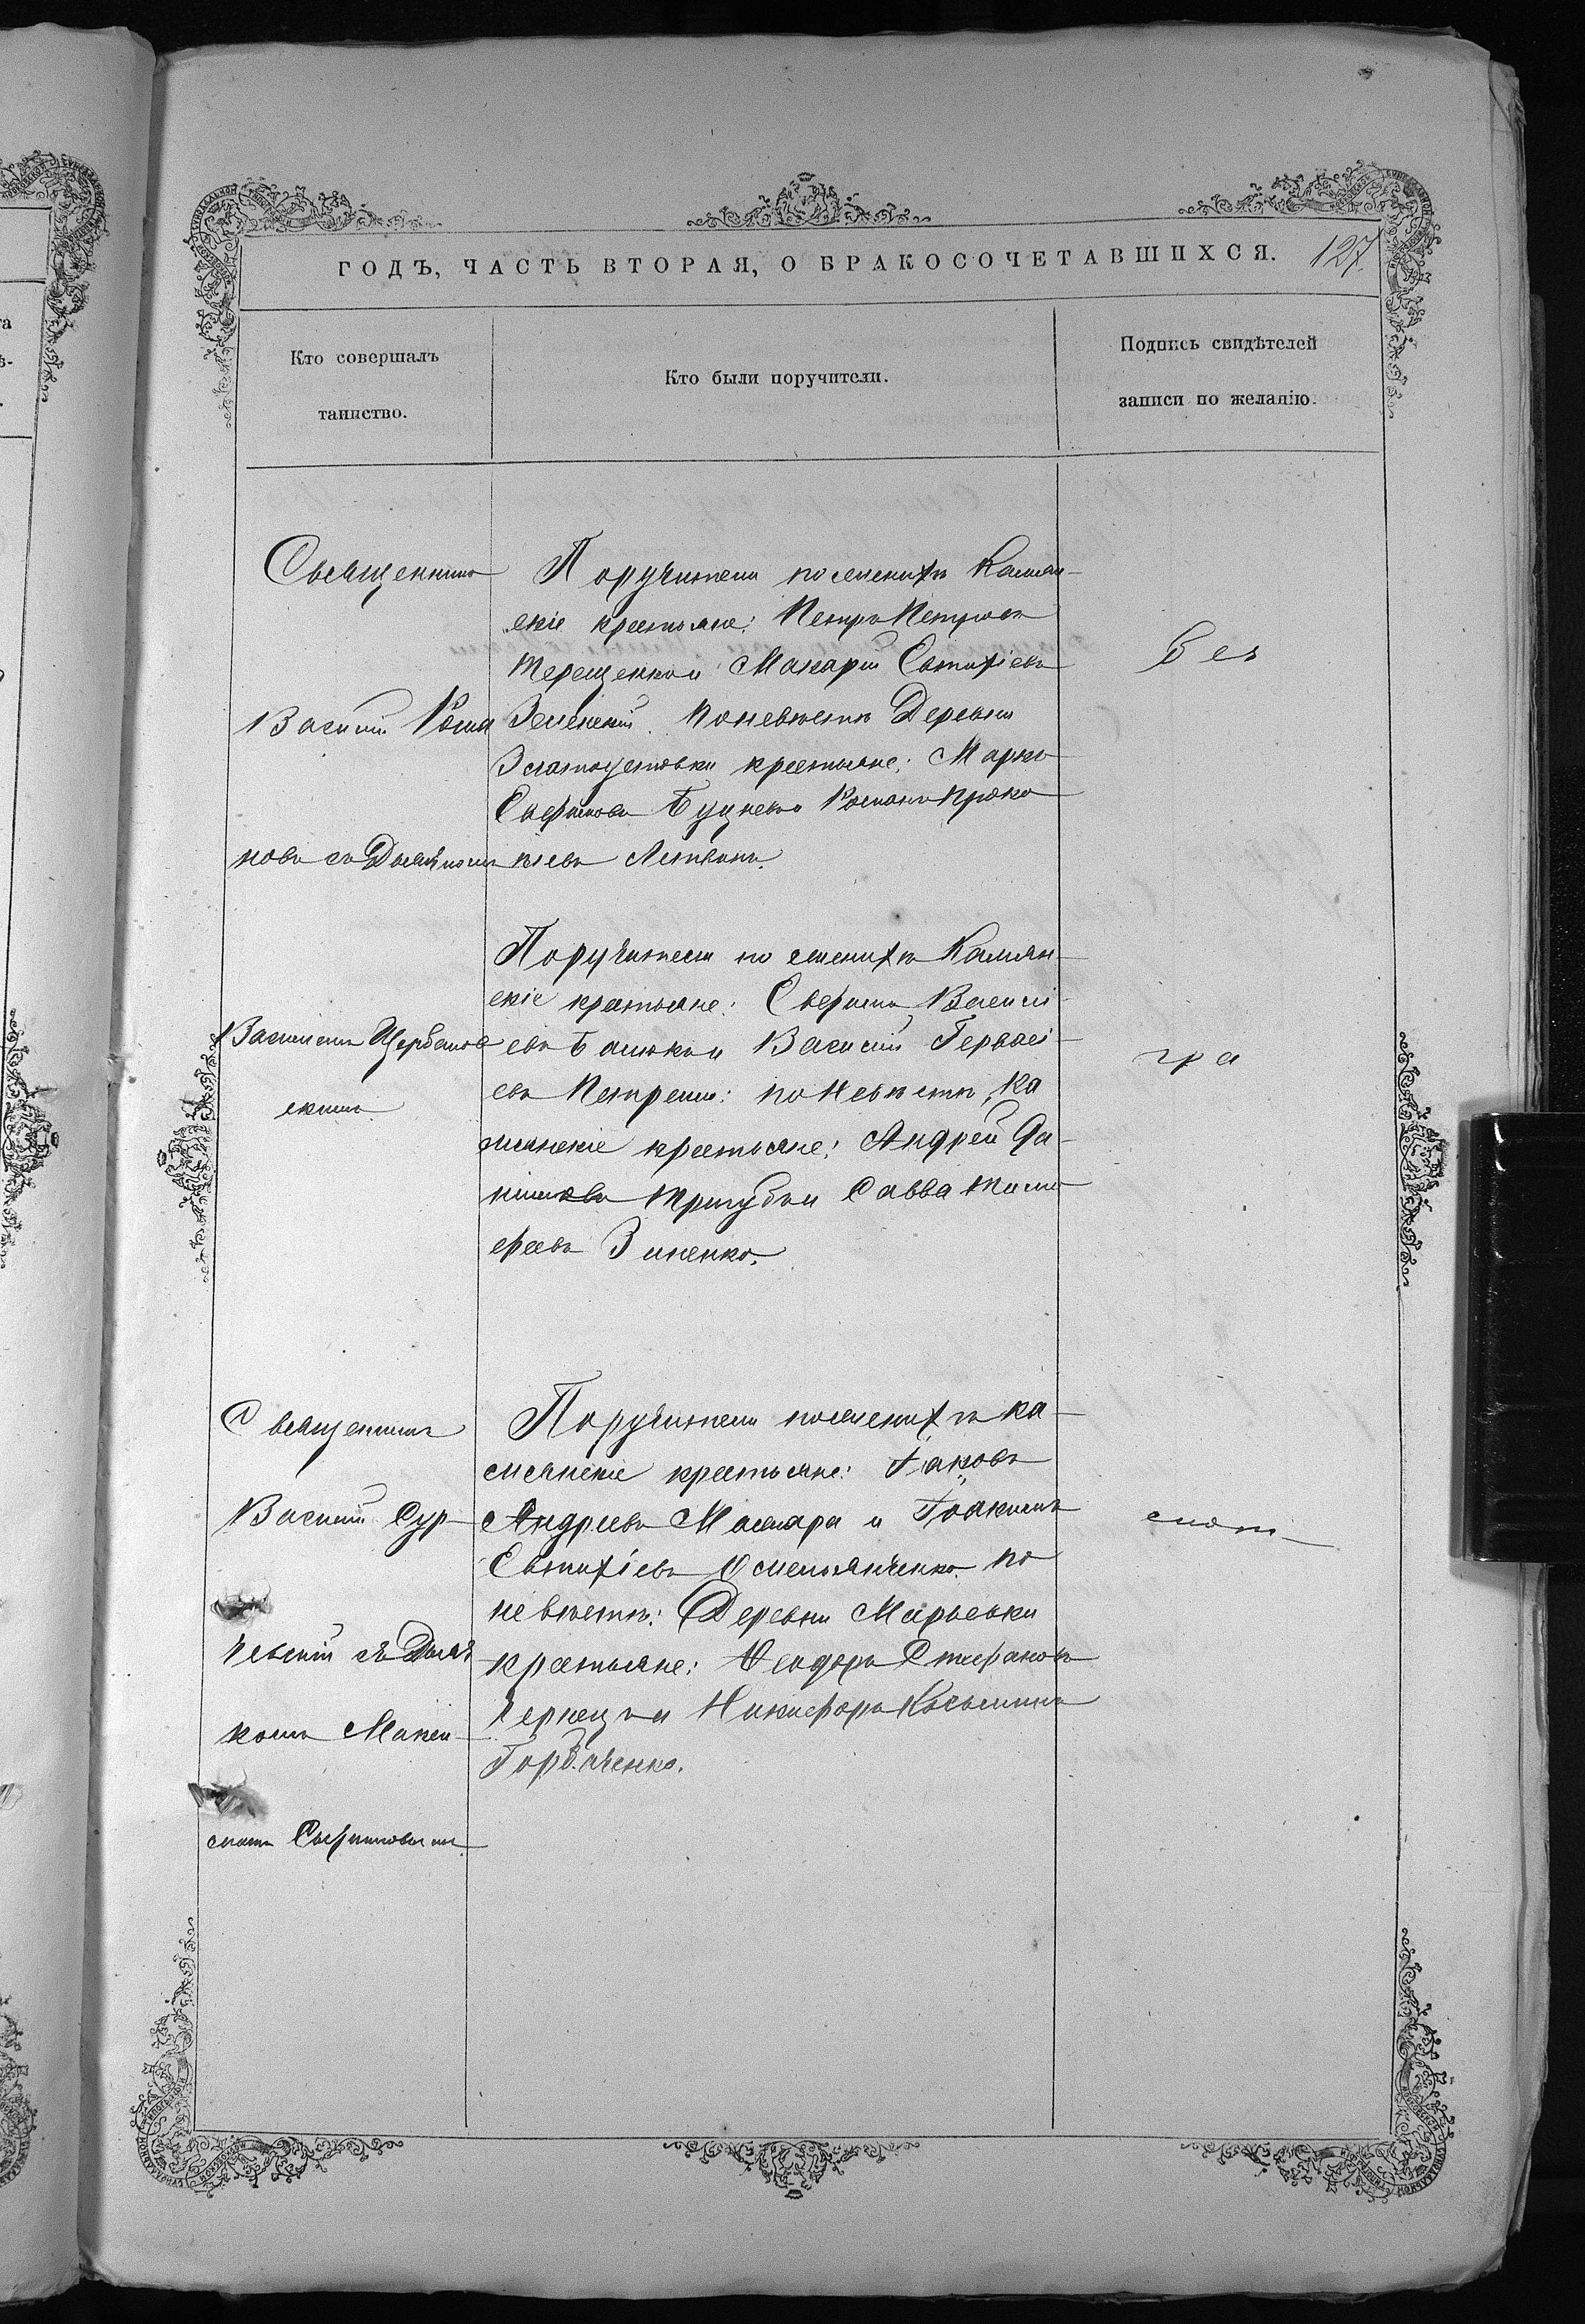 ГОДЪ, ЧАСТЬ ВТОРАЯ, О БРАКОСОЧЕТАВШИХСЯ. 127.
Кто совершалъ
таинство.
Кто были поручители.
Подпись свидѣтелей
записи по желанію.
Священникъ
Василій Рома
новъ съ Дьячкомъ
Василіемъ Щербанов
скимъ
Поручители по женихѣ Камян-
скіе крестьяне: Петръ Петровъ
Терещенко и Макарій Евтихіевъ
Зеленскій. По невѣстѣ Деревни
Златоустовки крестьяне: Марко
Евфимовъ Буцневъ и Романъ Проко
піевъ Литвинъ.
Без
Поручители по женихѣ Камян-
скіе крестьяне: Евфимъ Василі-
евъ Балюкъ и Василій Гервасі-
евъ Петренко: по Невѣстѣ, Ка
мянскіе крестьяне: Андрей Да-
ниловъ Тригубъ и Савва Тимо
феевъ Зиненко.
гра
Священникъ
Василій Сур-
невскій съ Дьяч
комъ Макси-
момъ Евфимовымъ.
Поручители по женихѣ Ка-
мянскіе крестьяне: Іаковъ
Андреевъ Маляра и Іоакимъ
Евтихіевъ Омельянченко. По
невѣстѣ: Деревни Марьевки
крестьяне: Ѳеодоръ Стефановъ
Чернецъ и Никифоръ Косьминъ
Горбаченко.
мот-